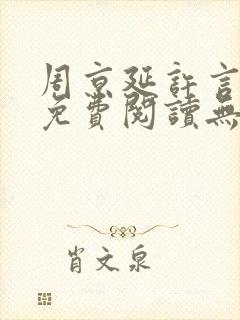 周京延許言
免費閱讀無
肖文泉